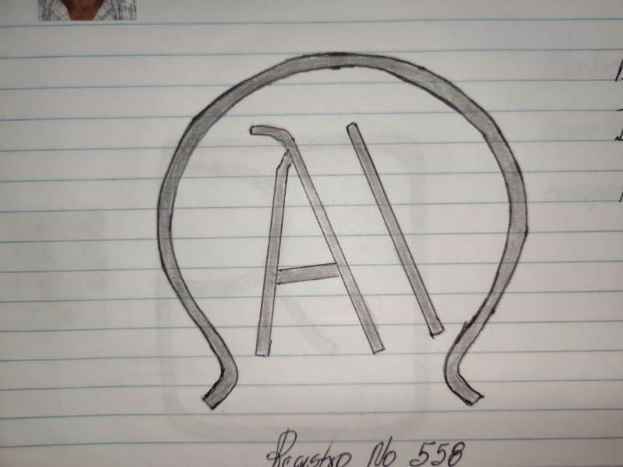 AI
Registro No 558